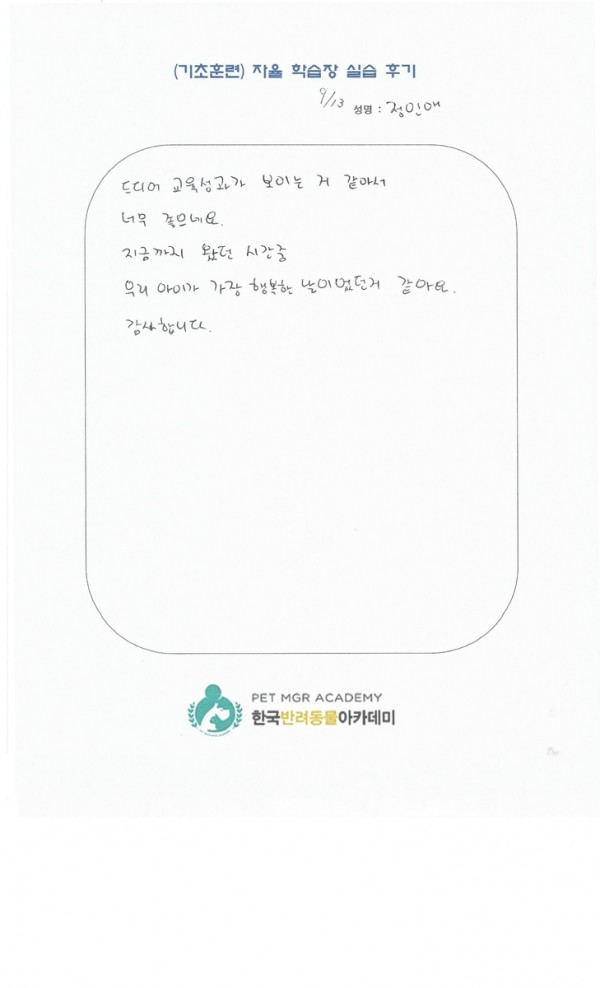 (기초훈련) 자율 학습장 실습 후기
9/13 성명 : 정인애
드디어 교육성과가 보이는 거 같아서
너무 좋으네요.
지금까지 왔던 시간중
우리 아이가 가장 행복한 날이었던거 같아요.
감사합니다.
PET MGR ACADEMY
한국반려동물아카데미